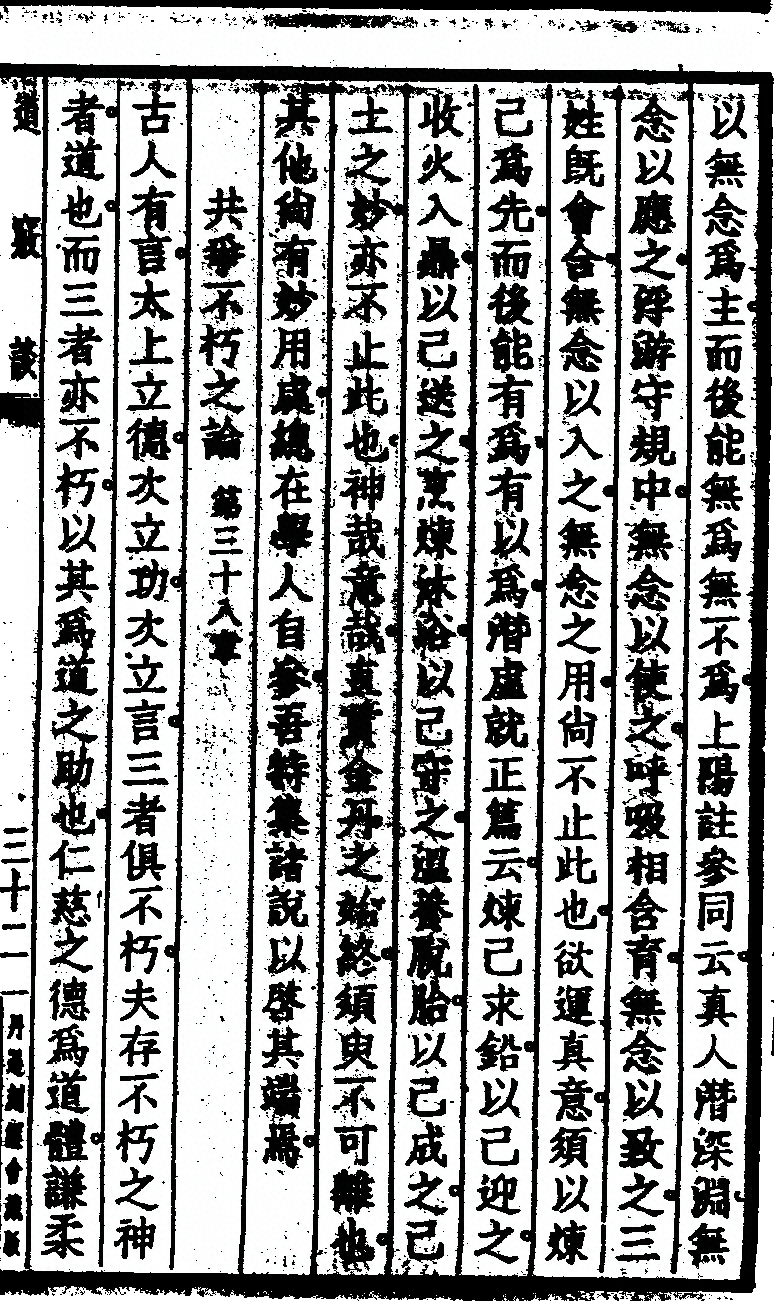 以無念爲主而後能無爲無不爲上陽註參同云真人潛深淵無
念以應之浮游守規中無念以使之呼吸相含育無念以致之三
姓旣會合無念以入之無念之用尙不止此也欲運真意須以煉
己爲先而後能有爲有以爲潛虛就正篇云煉己求鉛以己迎之
收火入鼎以己送之烹煉沐浴以己守之溫養脫胎以己成之己
土之妙亦不止此也神哉意哉真實金丹之始終須臾不可離也
其他尙有妙用處總在學人自參吾特集諸說以啓其端焉
共爭不朽之論 第三十八章
古人有言太上立德次立功次立言三者俱不朽夫存不朽之神
者道也而三者亦不朽以其爲道之助也仁慈之德爲道體謙柔
道竅談 三十二 丹道刻經會藏版